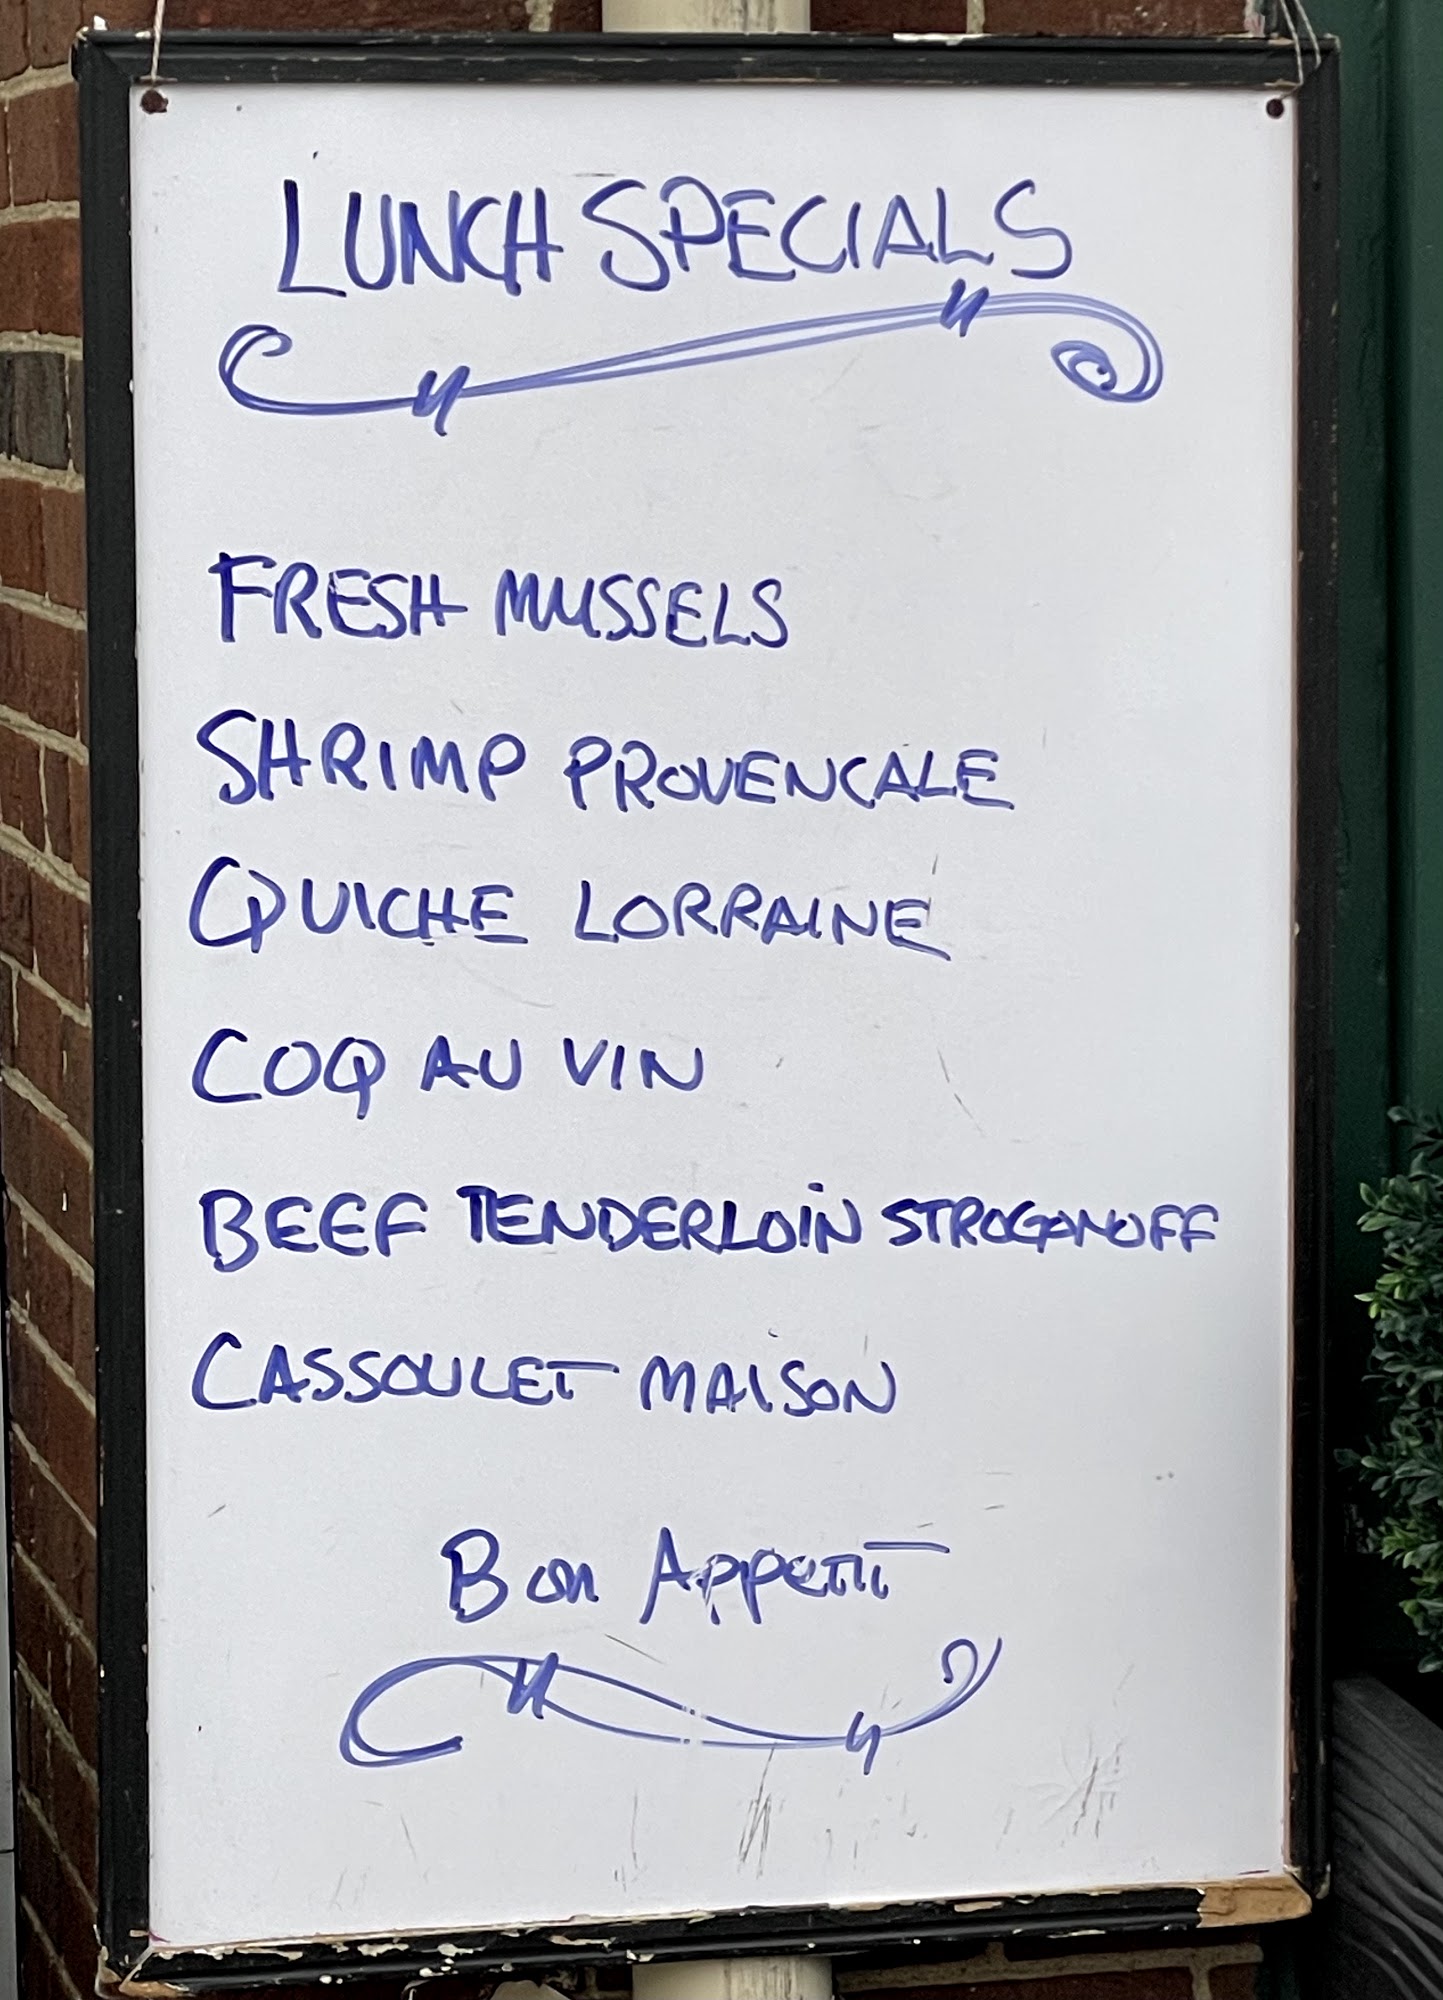 LUNCH SPECIALS
FRESH MUSSELS
SHRIMP PROVENCALE
QUICHE LORRAINE
COQ AU VIN
BEEF TENDERLOIN STROGANOFF
CASSOULET MAISON
Bon Appetit